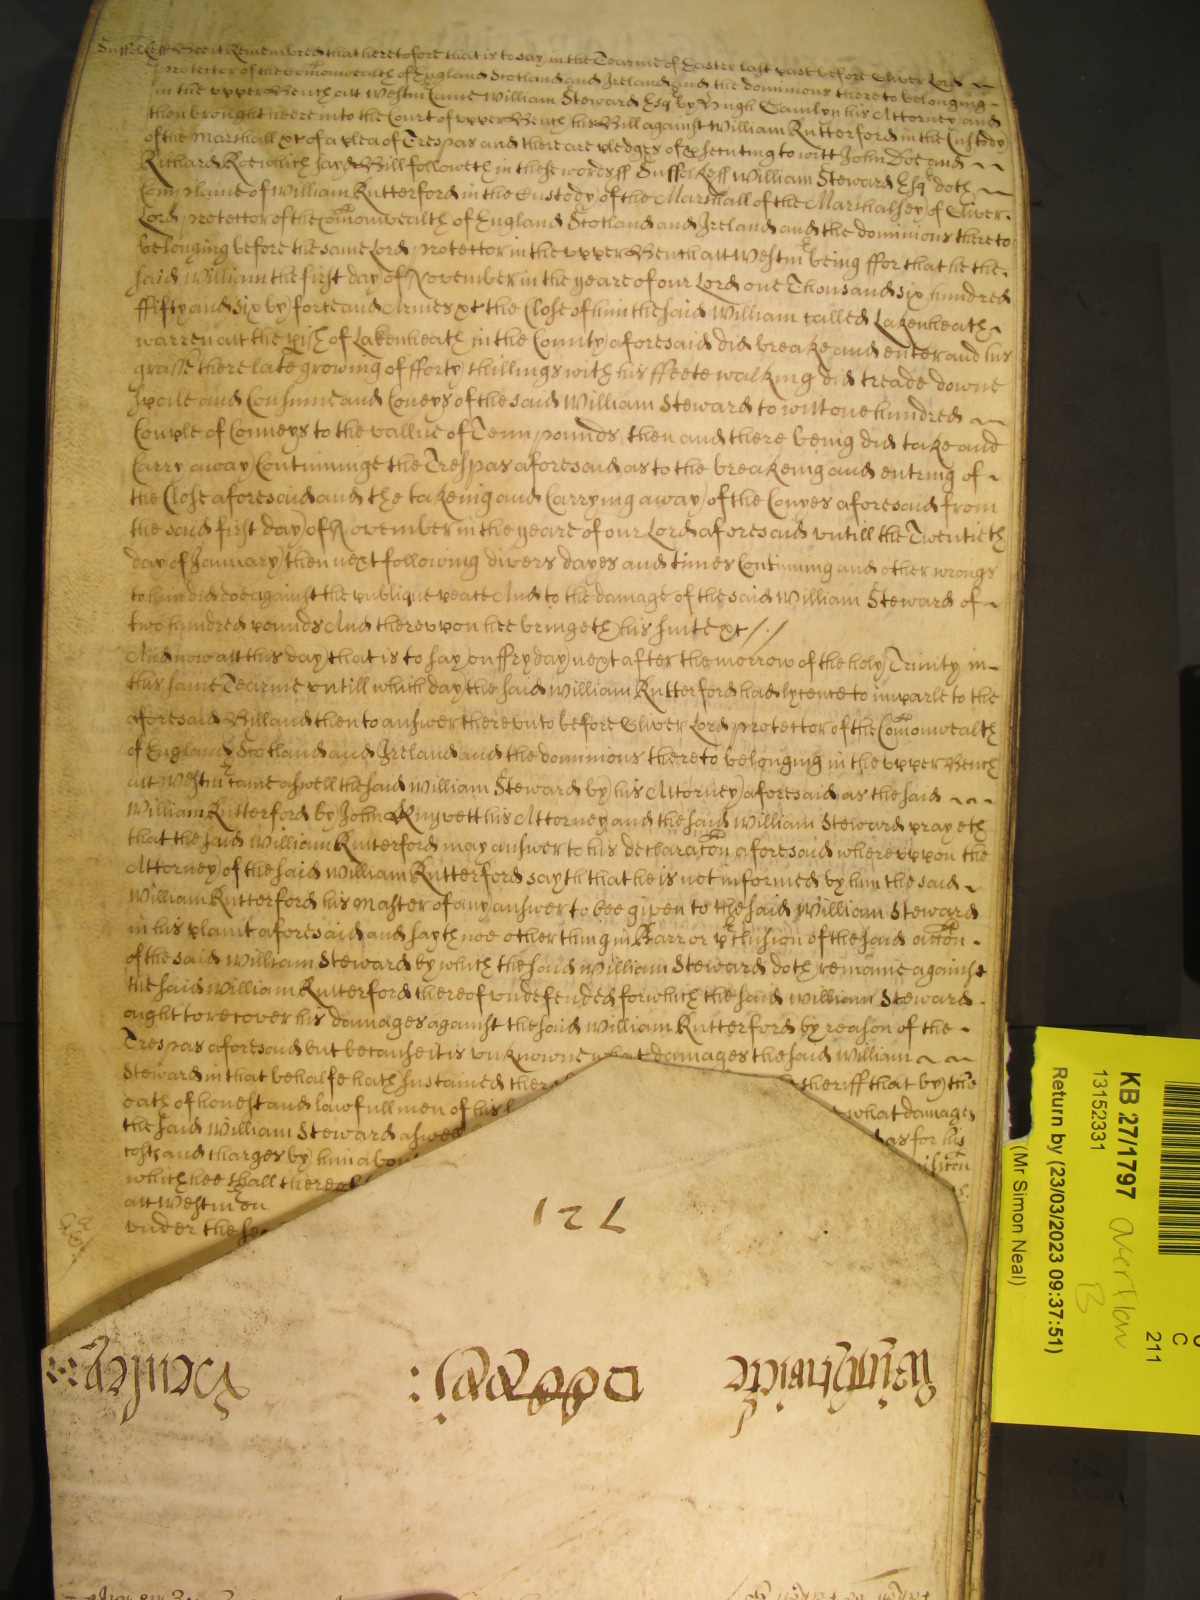 Suff ss Bee it Remembred that heretofore that is to say in the Tearme of Easter last past before Oliver Lord
Protector of the Comonwealth of England Scotland and Ireland and the dominions there to belonging
in the upper Bench att Westm Came William Steward Esq by Hugh his Attorney and
then brought heere into the Court of upper Bench his Bill against William Rutterford in the Custody
of the Marshall &c of a plea of Trespas and there are pledges of prosecuting to witt John Doe and
Richard Roe which said Bill followeth in these words ss Suffolke ss William Steward Esq doth
Complaine of William Rutterford in the Custody of the Marshall of the Marshalsey of Oliver
Lord protector of the Comonwealth of England Scotland and Ireland and the dominions there to
belonging before the same Lord protector in the upper Bench att Westm being ffor that he the
said William the first day of November in the yeare of our Lord one Thousand six hundred
ffifty and six by force and Armes &c the Close of him the said William called Lakenheath
warren att the pish of Lakenheath in the County aforesaid did breake and enter and his
grasse there late growing of fforty shillings with his ffeete walking did treade downe
spoile and Consume and Coneys of the said William Steward to witt one hundred
Couple of Conneys to the vallue of Tenn pounds then and there being did take and
Carry away Continuinge the Trespas aforesaid as to the breakeing and entring of
the Close aforesaid and the takeing and Carrying away of the Conyes aforesaid from
the said first day of November in the yeare of our Lord aforesaid untill the Twentieth
day of January then next following divers dayes and times Continuing and other wrongs
to him did doe against the publique peace And to the damage of the said William Steward of
two hundred pounds And thereupon hee bringeth his suite &c //
And now att this day that is to say on ffryday next after the morrow of the holy Trinity in
this same Tearme untill which day the said William Rutterford had lycence to imparle to the
aforesaid Bill and then to answer thereunto before Oliver Lord protector of the Comonwealth
of England Scotland and Ireland and the dominions there to belonging in the upper Bench
att Westm came aswell the said William Steward by his Attorney aforesaid as the said
William Rutterford by John Knyvett his Attorney and the said William Steward prayeth
that the said William Rutterford may answer to his declaracon aforesaid whereupon the
Attorney of the said William Rutterford sayth that he is not informed by him the said
William Rutterford his master of any answer to bee given to the said William Steward
in his plaint aforesaid and sayth noe other thing in Barr or pclusion of the said accon
of the said William Steward by which the said William Steward doth remaine against
the said William Rutterford thereof undefended for which the said William Steward
ought to recover his damages against the said William Rutterford by reason of the
Trespas aforesaid but because it is unknowne what damages the said William
Steward in that behalfe hath sustained sheriff that by the
oath of honest and lawfull men of his what damages
the said William Steward aswell as for his
costs and charges by him
which hee shall thereof
att Westm on
under the
127
KB 27/1797
13152331
Return by (23/03/2023 09:37:51)
(Mr Simon Neal)
overflow
B
C
211